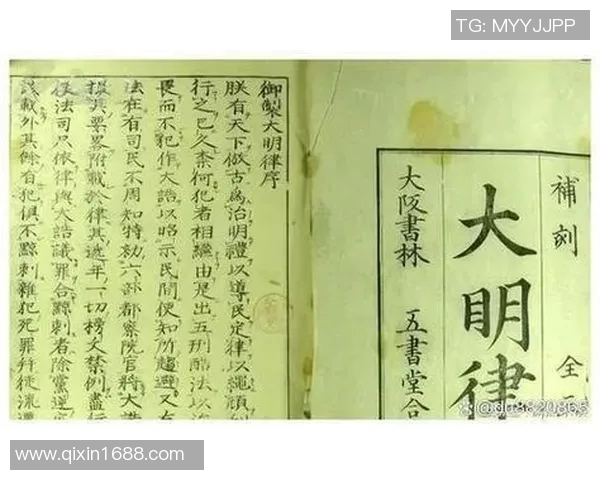 TG: MYYJJPP
補刻 全
大明律
大阪書林 五書堂合
御製大明律序
朕有天下倣古爲治明禮以導民定律以繩頑
行之已久柰何犯者相繼由是出五刑酷法以治
畏而不犯作大誥以昭示民間使知所趨避又有
法在有司民不周知特勅六部都察院官將大誥
撮其要畧附載於律其遞年一切榜文禁例盡行
法司只依律與大誥議罪合黥刺者除黨逆家
該載外其餘有犯俱不黥刺雜犯死罪幷徒流遷
www.qixin1688.com